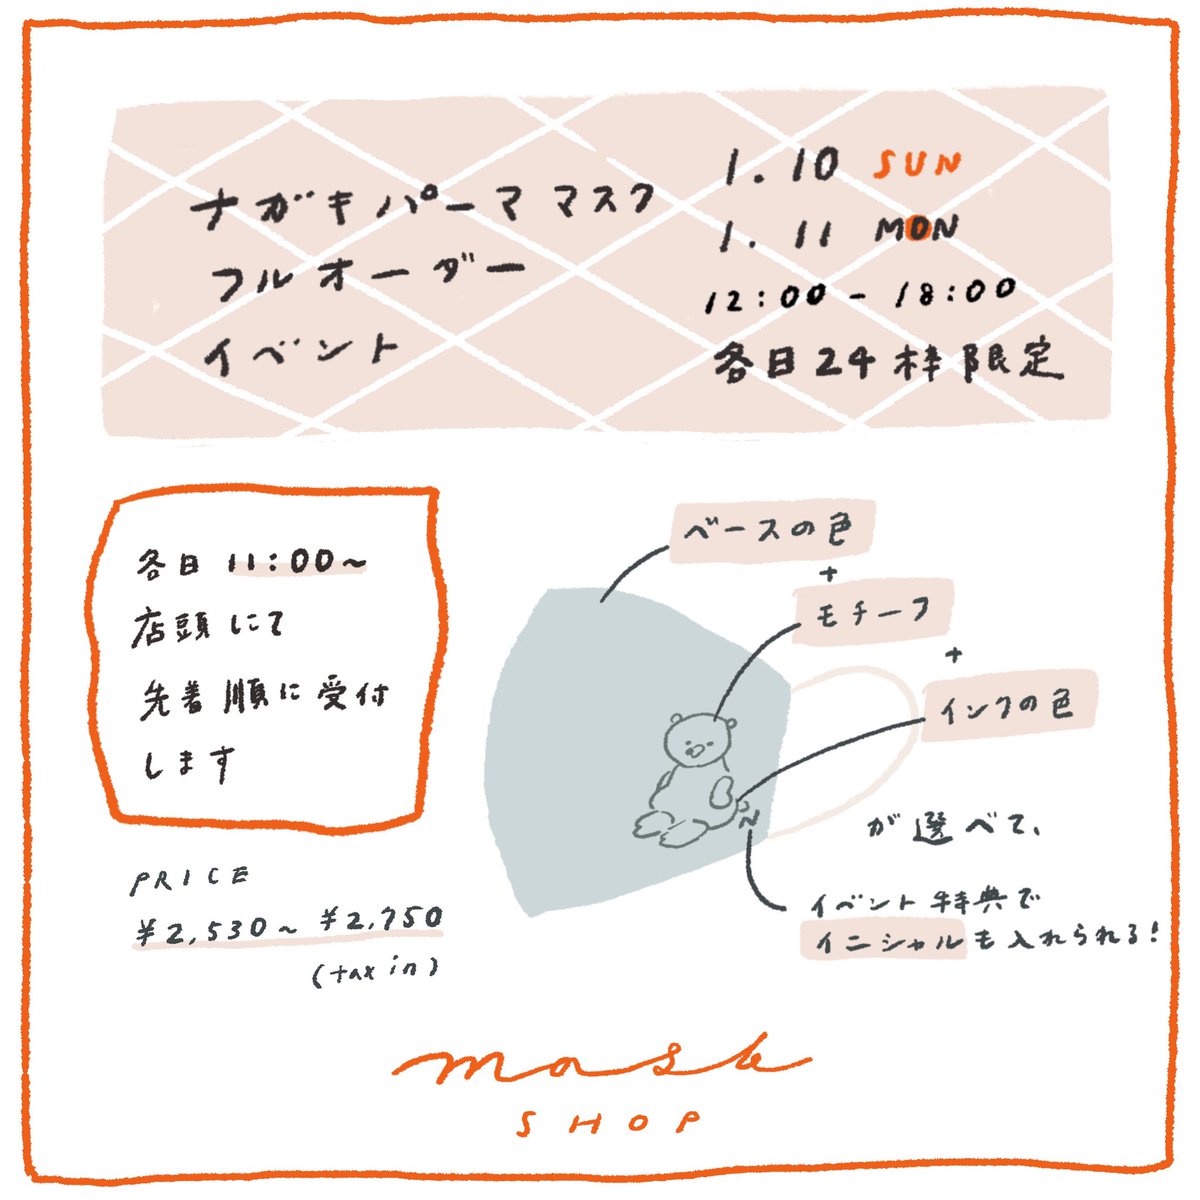 ナガキパーママスク
フルオーダー
イベント
1.10 SUN
1.11 MON
12:00-18:00
各日24枠限定
各日 11:00~
店頭にて
先着順に受付
します
PRICE
¥2,530~¥2,750
(tax in)
ベースの色
+
モチーフ
+
インクの色
が選べて、
N
イベント特典で
イニシャルも入れられる!
mask
SHOP